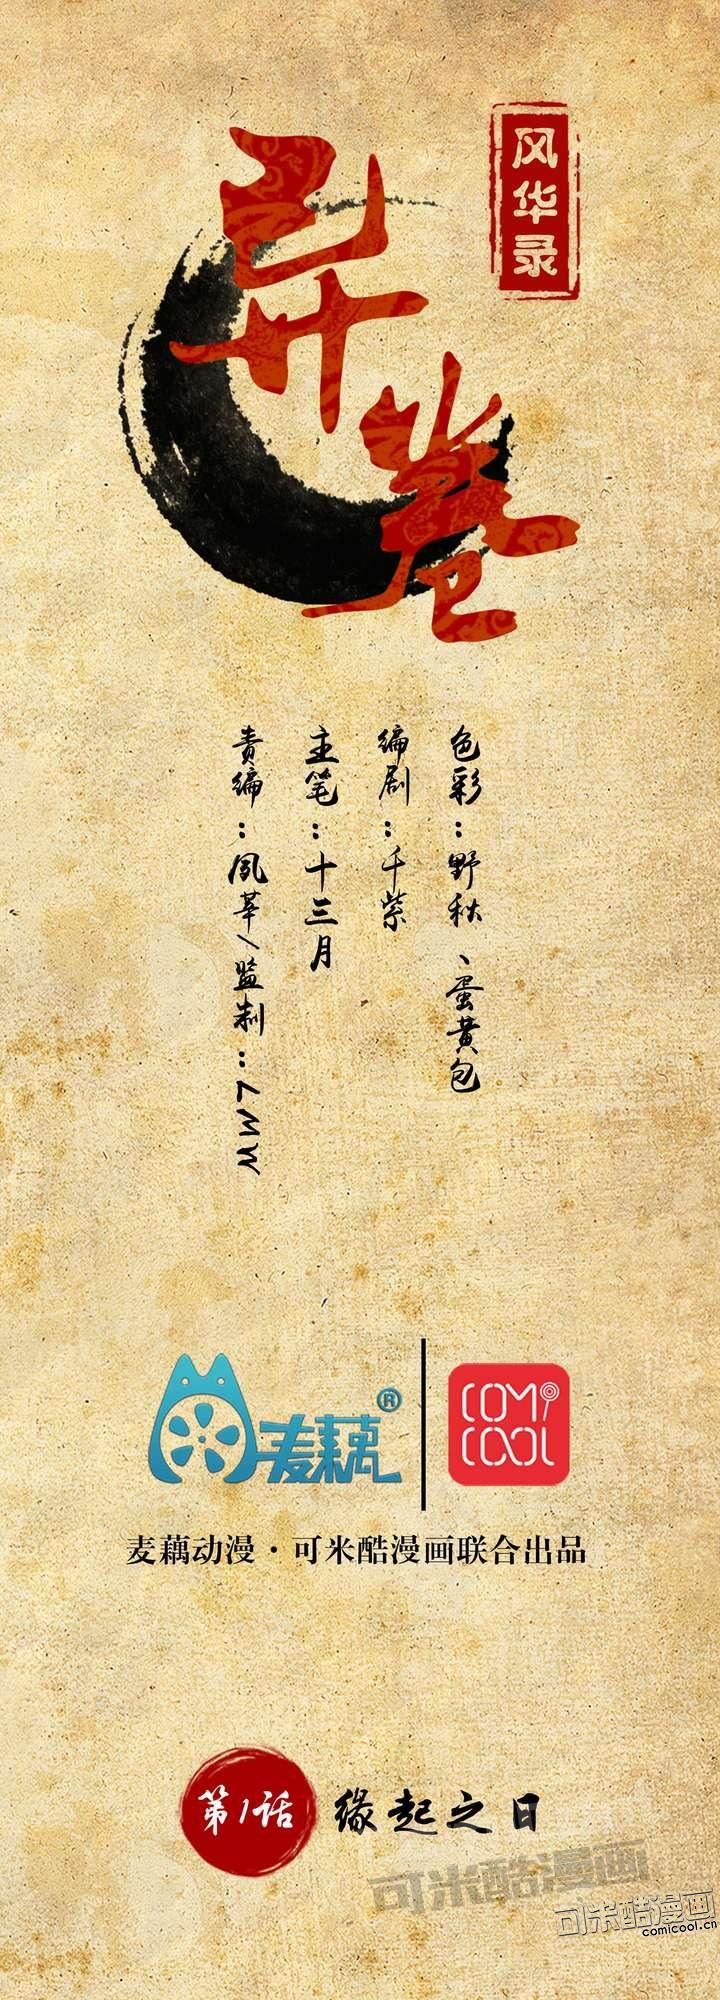 风华录
异卷
色彩：野秋、蛋黄包
编剧：千紫
主笔：十三月
责编：夙莘/监制：ZMWW
麦藕®
COMI COOL
麦藕动漫·可米酷漫画联合出品
第1话 缘起之日
可米酷漫画
可米酷漫画
comicool.cn